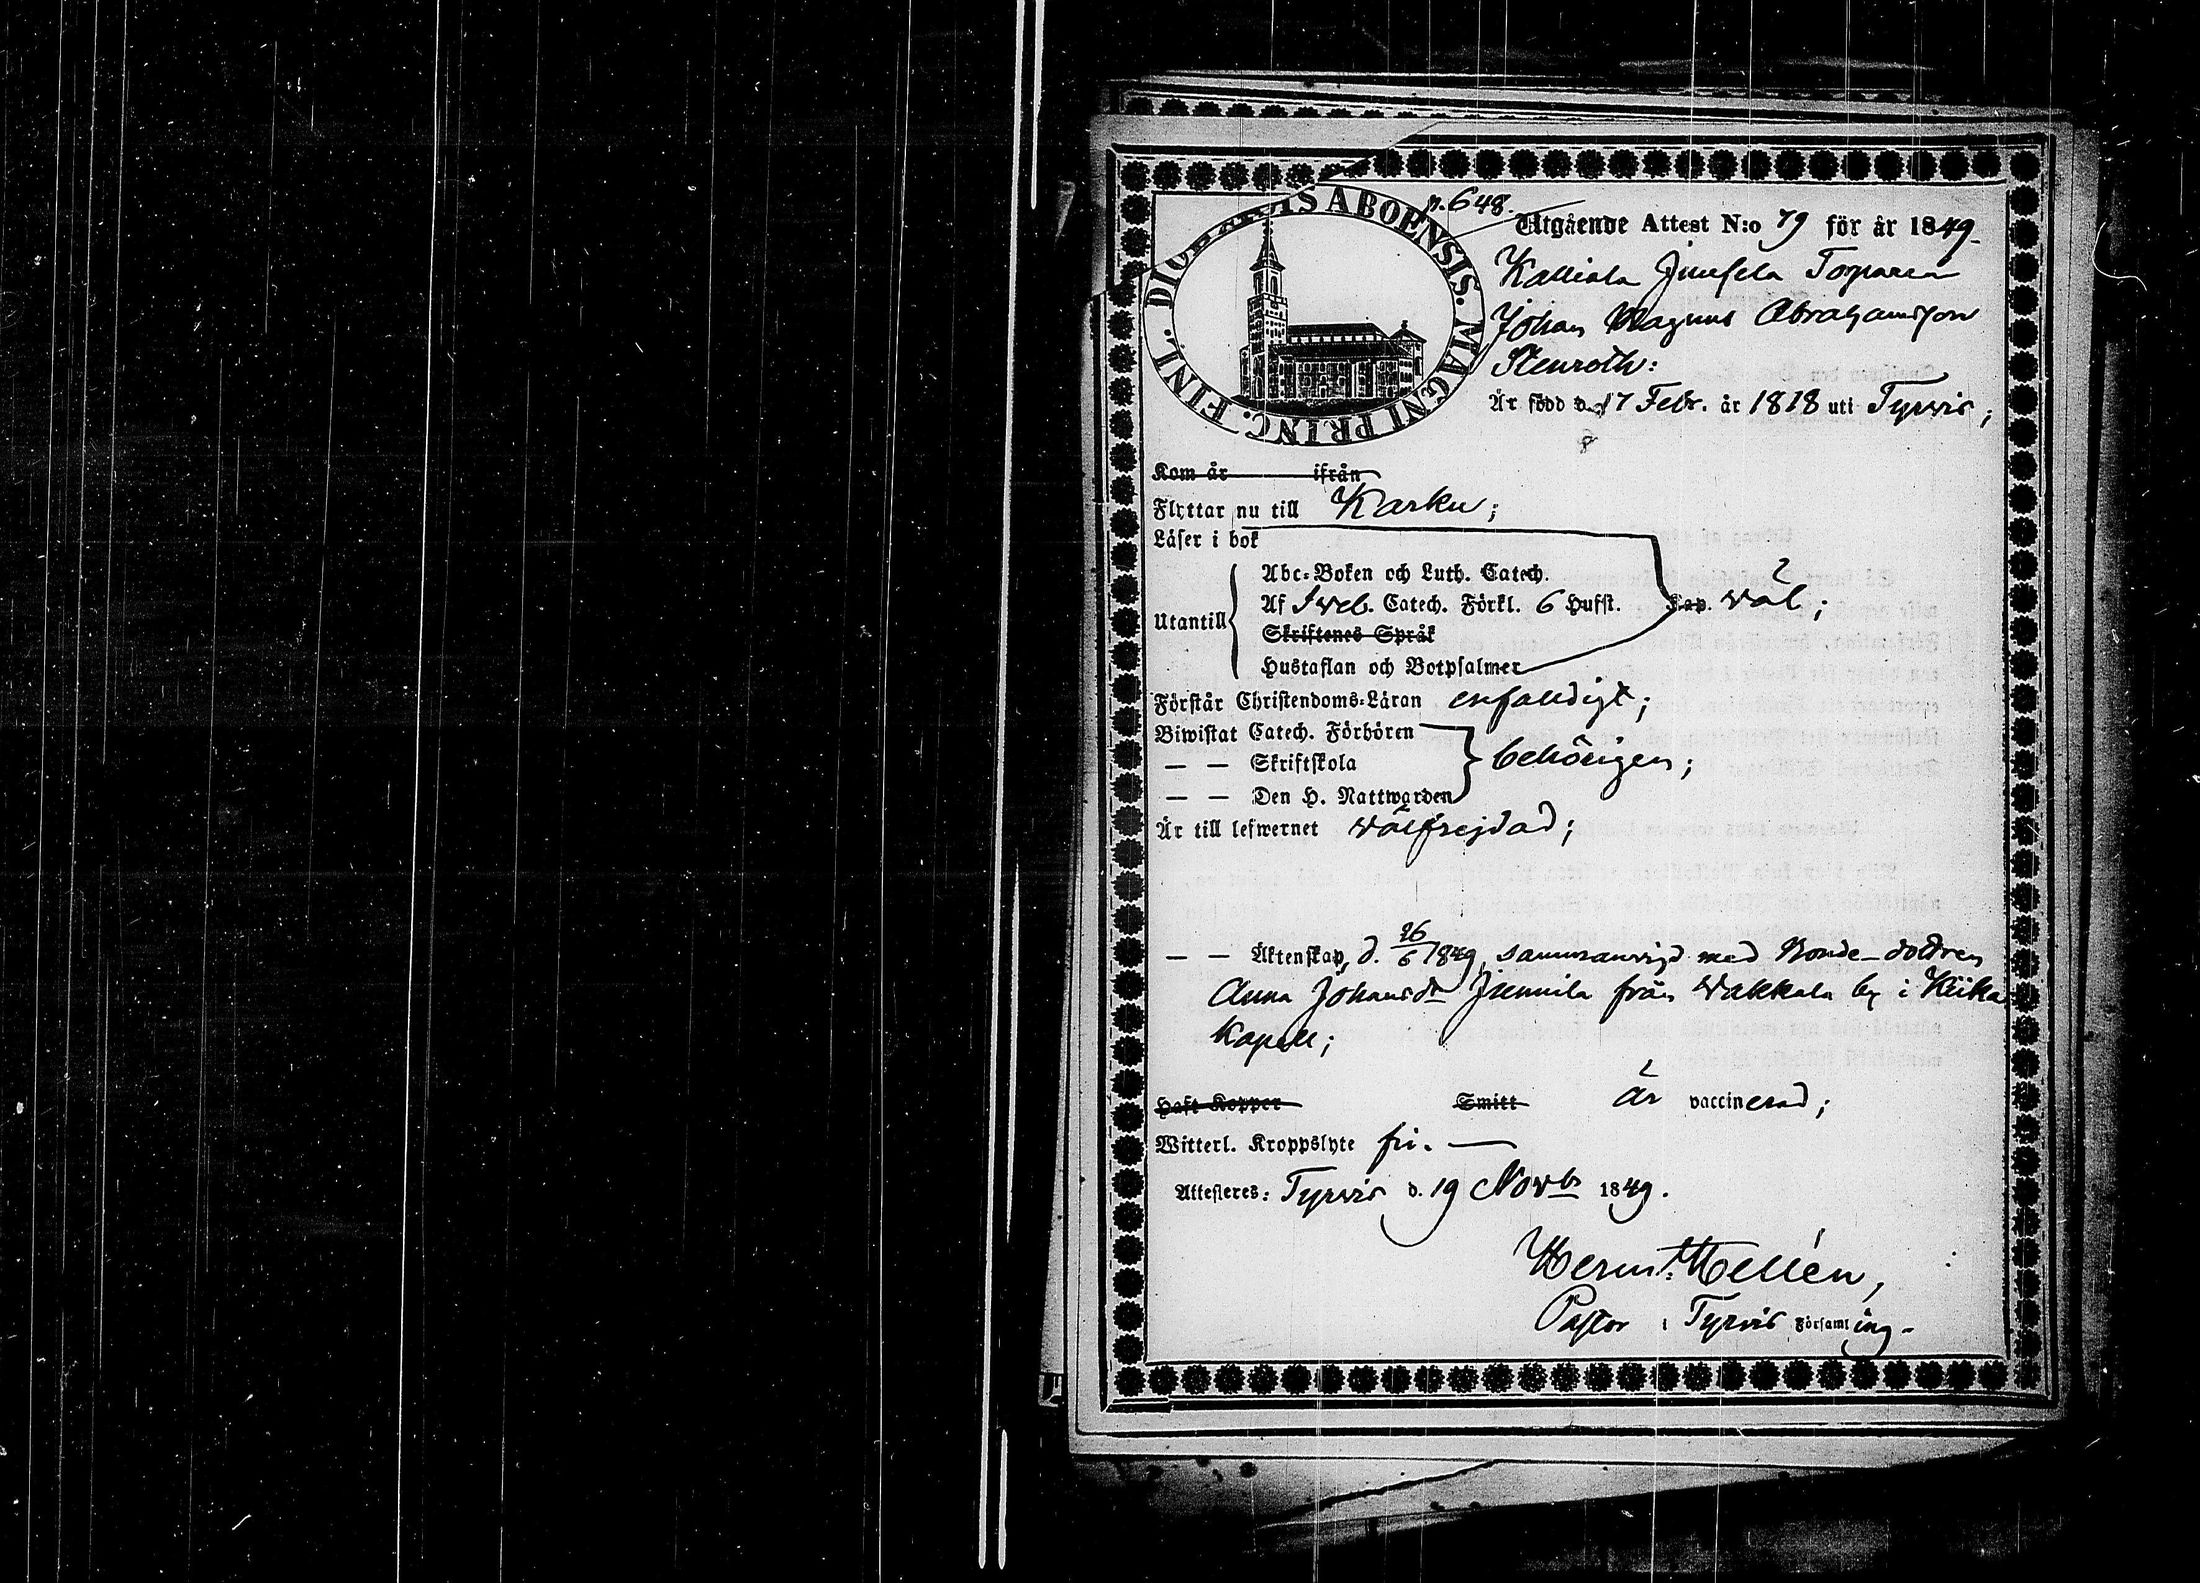 p. 648.
DIOECESIS ABOENSIS. MAGNI PRINC. FINL.
Utgående Attest N:o 79 för år 1849.
Kalliala Juusela Torparen
Johan Magnus Abrahamsson
Stenroth:
Är född d. 17 Febr. år 1818 uti Tyrvis;
Kom år ifrån
Flyttar nu till Karku;
Läser i bok
Utantill
Abc-Boken och Luth. Catech.
Af Sveb. Catech. Förkl. 6 Hufst. Kap. väl;
Skriftenes Språk
Hustaflan och Botpsalmer
Förstår Christendoms-Läran enfaldigt;
Biwistat Catech. Förhören
— — Skriftskola behörigen;
— — Den H. Nattwarden
Är till lefwernet välfrejdad;
— — Äktenskap, d. 26/6 1849, sammanvigd med Bonde-dottren
Anna Johansdr Junnila från Vakkala by i Kiika
Kapell;
Haft Koppor Smitt är vaccinerad;
Witterl. Kroppslyte fri. —
Attesteres: Tyrvis d. 19 Novbr 1849.
Herm. Hellén,
Pastor i Tyrvis Församling.